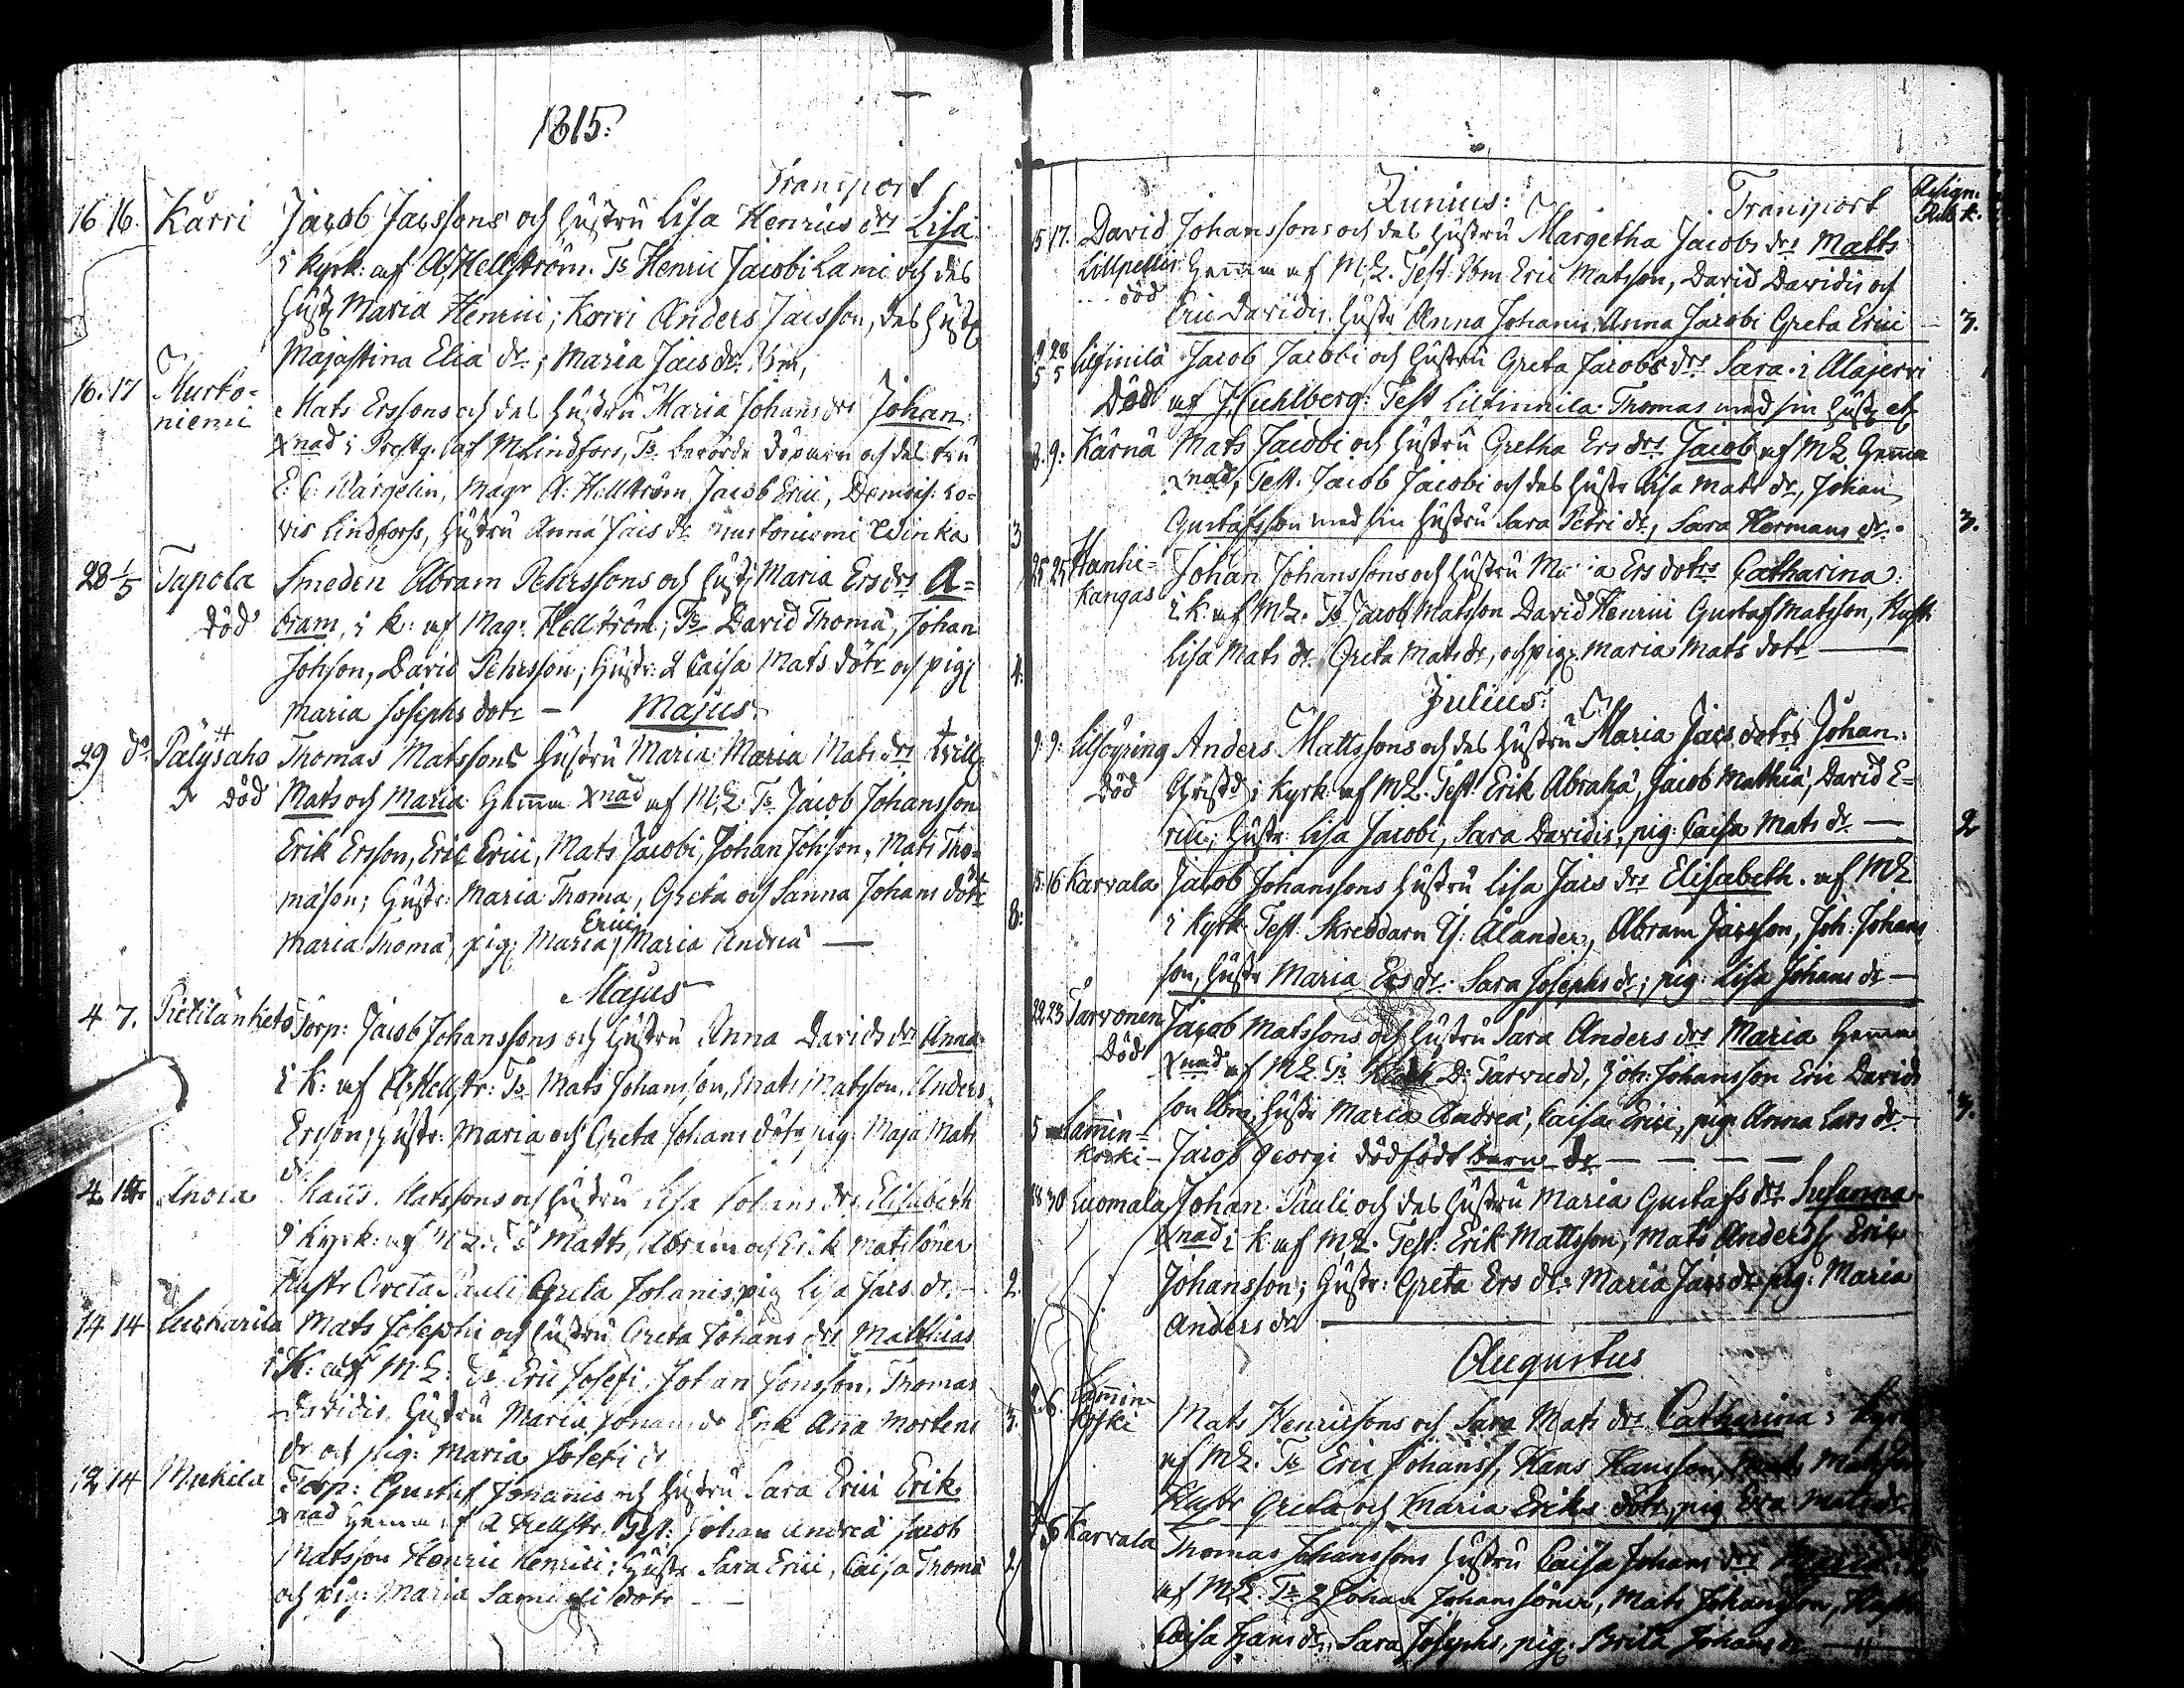 1815.
Transport
16 16. Karri Jacob Jacssons och hustru Lisa Henrics drs Lisa
i kyrk: af A. Hellström. Ts Henric Jacobi Lami och des
hust Maria Henrici; Korri Anders Jacsson, des hust
Majastina Elia dr; Maria Jacs dr
16. 17 Murto-
niemi
Mats Erssons och des hustru Maria Johans drs Johan
xnad i Prestg. af M Lindfors, Ts berörde döparen och des fru
E: C: Wargelin, Magr A: Hellström, Jacob Erici, Demois: Lo-
vis Lindforss, hustru Anna Jacs dr Murtoniemi
3
28 1/5 Tapola Smeden Abram Pehrssons och hust Maria Ers drs A-
död bram, i k: af Magr Hellström; Ts David Thomæ, Johan
Johsson, David Pehrsson; hustr: Caisa Mats dotr och pig
4.
Maria Josephs dotr — Majus
29 do Pälysaho Thomas Matssons hustru Maria Maria Mats drs tvill
död Mats och Maria Hemma xnad af M.L. Ts Jacob Johansson
Erik Ersson, Eric Erici, Mats Jacobi, Johan Johsson, Mats Tho-
mason; Hustr: Maria Thoma, Greta och Sanna Johans dötr
8:
Maria Thomæ, pig: Maria Erici Maria Andreæ —
Majus
4 7. Pietilänketo Torp: Jacob Johanssons och hustru Anna Davids dr Anna
i K: af A. Hellstr: Ts Mats Johansson, Mats Matsson, Anders
Ersson; hustr: Maria och Greta Johans dötr, pig: Maja Mats
dr
4 14 Anola Matts Matssons och hustru Lisa Johans drs Elisabeth
i kyrk: af M.L: Ts Matts, Abram och Erik Matssöner
Hustr Greta Pauli Greta Johanis, pig Lisa Jacs dr. — 2.
14 14 Luskarila Mats Josephi och hustru Greta Johans drs Matthias
i K: af M.L: Ts Eric Josefi, Johan Jonsson, Thomas
Davidis, hustru Maria Johans dr Enk Anna Mortens 3.
dr och pig: Maria Josefi dr
12 14 Mickila Torp: Gustaf Johannis och hustru Sara Erici Erik
xnad Hemma af A Hellstr. Test: Johan Andreæ Jacob
Matsson Henric Henrici; Hustr Sara Erici, Caisa Thomæ 2
och pig: Maria Samueli dotr —
Junius: Transport Asign.
Rub. k.
15 17. David Johanssons och des hustru Margetha Jacobs drs Matts
Lillpettis Hemma af M.L. Test. Eric Matsson, David Davidis och
död
Eric Davidis. hustr Anna Johanis Anna Jacobi Greta Erici — 3.
28 5 5 Jacob Jacobi och hustru Greta Jacobs drs Sara. i Alajervi
Död af J. Cuhlberg: Test Thomas med sin hust
8. 9: Kärnä Mats Jacobi och hustru Gretha Ers drs Jacob af M.L. Hemma
xnad, Test. Jacob Jacobi och des hustr Lisa Mats dr, Johan
Gustafsson med sin hustru Sara Petri dr, Sara Hermans dr. 3.
25 25 Hanhi-
kangas
Johan Johanssons och hustru Maria Ers dotrs Catharina:
i k. af M.L. Ts Jacob Matsson David Henrici Gustaf Matsson, Hust
Lisa Mats dr Greta Mats dr, och pig Maria Mats dotr —
Julius:
9. 9: Anders Mattssons och des hustru Maria Jacs dotrs Johan:
Död Christd i Kyrk af M.L. Test. Erik Abrahæ, Jacob Matthiæ, David E-
rici; hustr: Lisa Jacobi, Sara Davidis, pig: Caisa Mats dr — 2
15. 16 Karvala Jacob Johanssons hustru Lisa Jacs drs Elisabeth. af M.L.
i kyrk Test. Skreddarn Ålander, Abram Jacsson, Joh: Johans
son, hustr Maria Ers dr. Sara Josephs dr; pig: Lisa Johans dr —
22 23 Tarvonen Jacob Matssons och hustru Sara Anders drs Maria Hemma
Död xnad af M.L. Ts D: Tarvudd, Joh: Johansson Eric Davids
son hustr Maria Andreæ, Caisa Erici, pig Anna Lars dr. — 3.
5 Lamin-
koski — Jacob Georgi dödfödt barn dr — — —
30 Luomala Johan Pauli och des hustru Maria Gustafs drs Susanna
xnad i k af M.L. Test: Erik Mattsson, Mats Anderss Eric
Johansson; hustr: Greta Ers dr: Maria Jacs dr pig: Maria
Anders dr —
Augustus
6. Lamin-
koski
Mats Henricsons och Sara Mats drs Catharina i kyr
af M.L. Ts Eric Johanss, Hans Hansson, Mats Matsson
Hustr Greta och Maria Eriks dötr, pig Eva Mats dr
6 Karvala Thomas Johanssons hustru Caisa Johans drs Maria
af M.L. Ts Johan Johanssöner, Mats Johansson, Hustr
Caisa Hans dr, Sara Josephs, pig: Brita Johans dr —